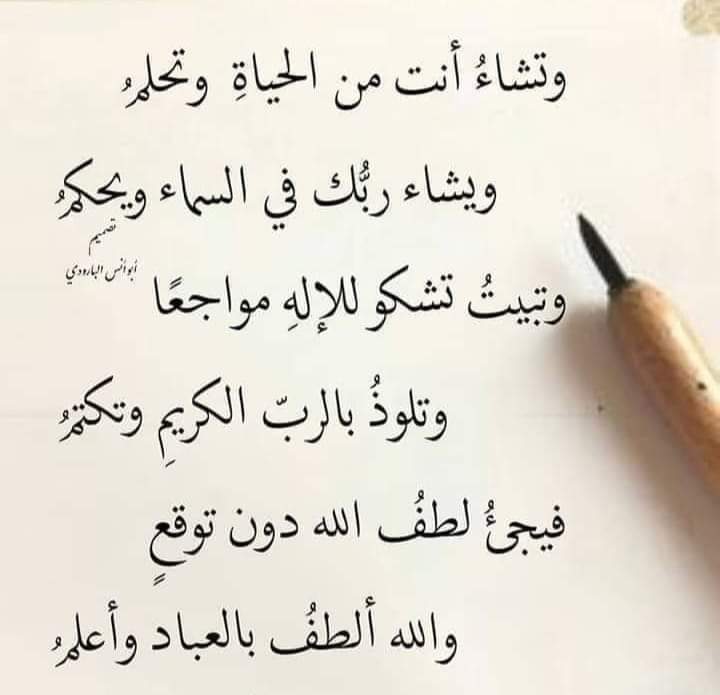 وتشاءُ أنت من الحياةِ وتحلمُ
ويشاء ربُّك في السماء ويحكمُ
تصميم
أبوأنس البارودي
وتبيتُ تشكو للإلهِ مواجعًا
وتلوذُ بالربّ الكريمِ وتكتمُ
فيجئُ لطفُ الله دون توقعٍ
والله ألطفُ بالعباد وأعلمُ